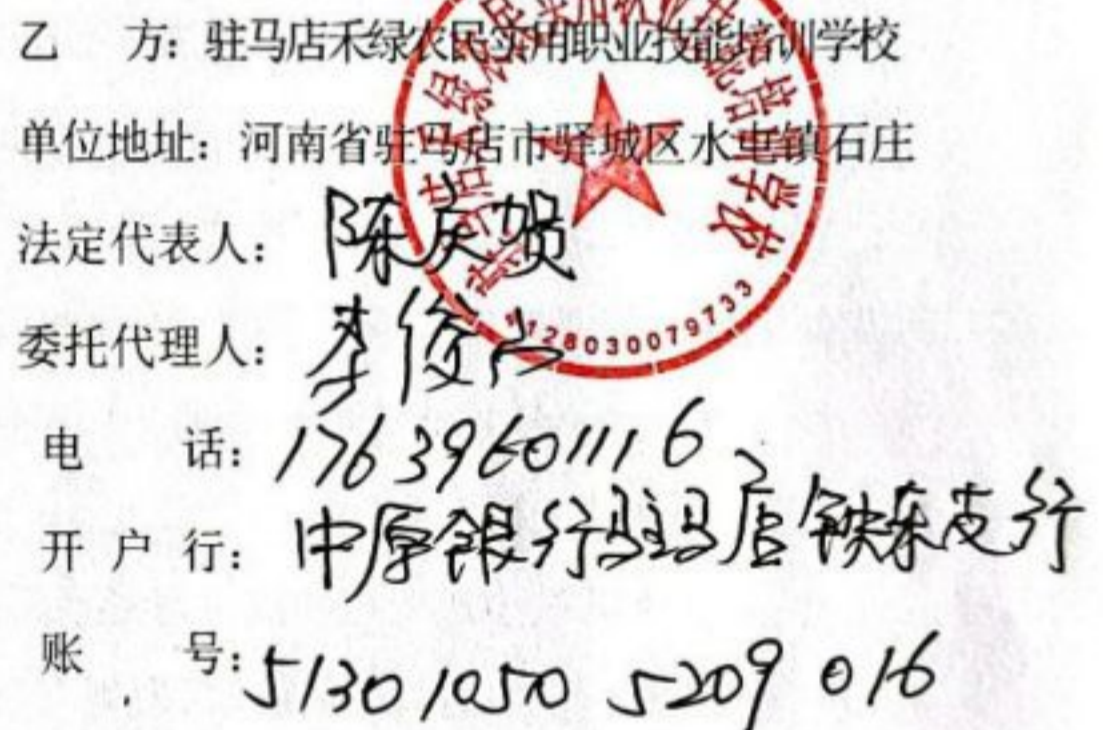 乙 方：驻马店禾绿农民实用职业技能培训学校
单位地址：河南省驻马店市驿城区水屯镇石庄
法定代表人：陈庆贺
委托代理人：李俊山
电 话：17639601116
开 户 行：中原银行驻马店铁东支行
账 号：51301050 5209 016
农民实用职业技能培训学校
4128030079733